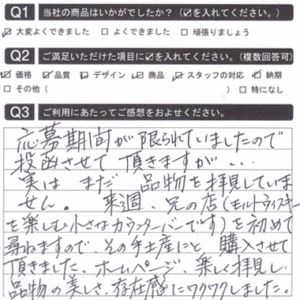 Q1 当社の商品はいかがでしたか?(☑を入れてください。)
☑大変よくできました □よくできました □頑張りましょう
Q2 ご満足いただけた項目に☑を入れてください。(複数回答可)
☑価格 ☑品質 ☑デザイン ☑商品 ☑スタッフの対応 ☑納期
□その他( ) □特になし
Q3 ご利用にあたってご感想をおよせください。
応募期間が限られていましたので
投函させて頂きますが…
実はまだ 品物を拝見していま
せん。来週、兄の店(モルトウイスキー
を楽しむ小さなカウンターバーです)を初めて
尋ねますので、その手土産にと購入させて
頂きました。ホームページ、楽しく拝見し
品物の美しさ、存在感にワクワクしました。